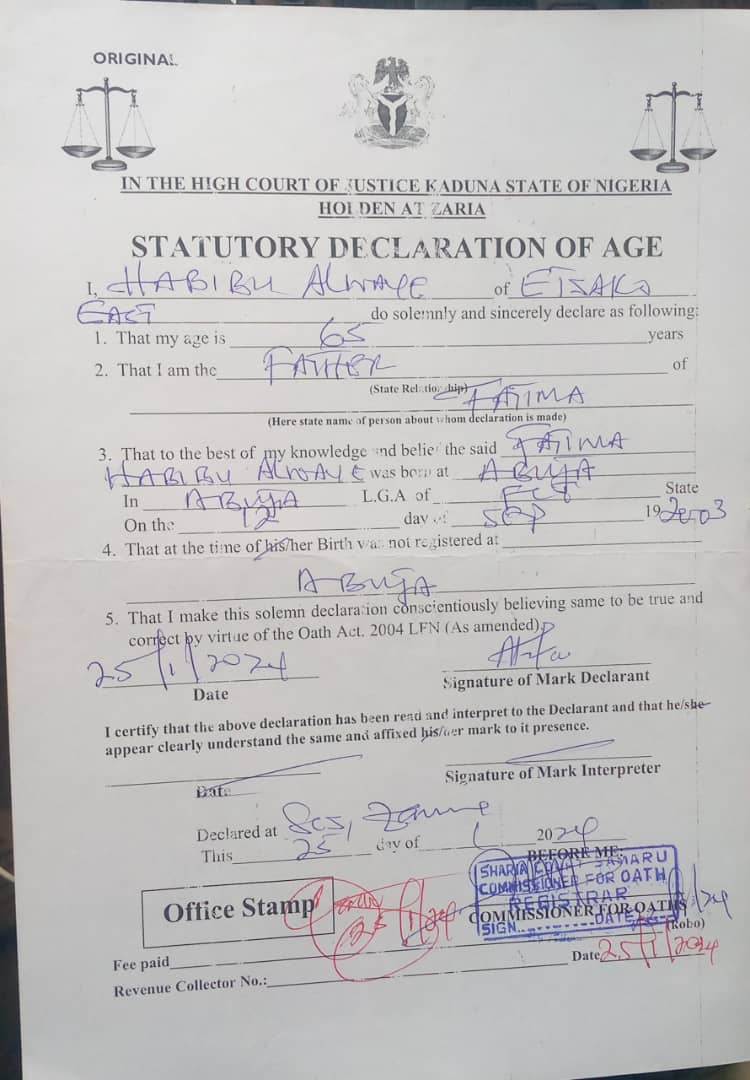 ORIGINAL
IN THE HIGH COURT OF JUSTICE KADUNA STATE OF NIGERIA
HOLDEN AT ZARIA
STATUTORY DECLARATION OF AGE
I, HABIBU ALWAYE of ETSAKO
EAST do solemnly and sincerely declare as following:
1. That my age is 65 years
2. That I am the FATHER of
(State Relationship)
FATIMA
(Here state name of person about whom declaration is made)
3. That to the best of my knowledge and belief the said FATIMA
HABIBU ALWAYE was born at ABUJA
In ABUJA L.G.A of FCT State
On the 12 day of SEP 19 Zero3
4. That at the time of his/her Birth was not registered at
ABUJA
5. That I make this solemn declaration conscientiously believing same to be true and
correct by virtue of the Oath Act. 2004 LFN (As amended).
25/1/2024
Date
Signature of Mark Declarant
I certify that the above declaration has been read and interpret to the Declarant and that he/she
appear clearly understand the same and affixed his/her mark to it presence.
Date
Signature of Mark Interpreter
Declared at
This 25 day of 1 2024
BEFORE ME:
SHARIA COURT SAMARU
COMMISSIONER FOR OATH
REGISTRAR
SIGN. DATE
COMMISSIONER FOR OATHS
Office Stamp
25/1/24
(Kobo)
Fee paid
Date 25/1/2024
Revenue Collector No.: